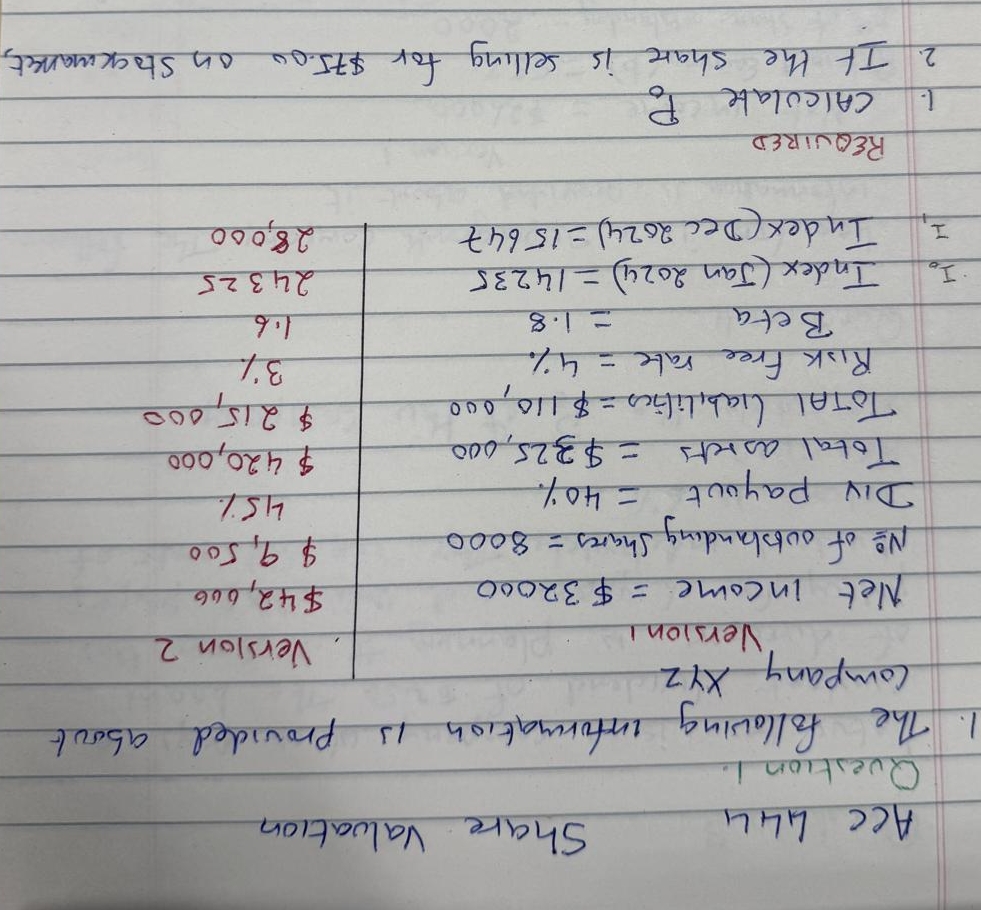 Acc 444 Share Valuation
Question 1.
1. The following information is provided about
Company XYZ
Version 1 Version 2
Net income = $32000 $42,000
No of outstanding shares = 8000 $ 9,500
Div payout = 40% 45%
Total assets = $325,000 $ 420,000
Total liabilities = $110,000 $ 215,000
Risk free rate = 4% 3%
Beta = 1.8 1.6
I₀ Index (Jan 2024) = 14235 24325
I₁ Index (Dec 2024) = 15647 28,000
REQUIRED
1. Calculate P₀
2. If the share is selling for $75.00 on stockmarket,